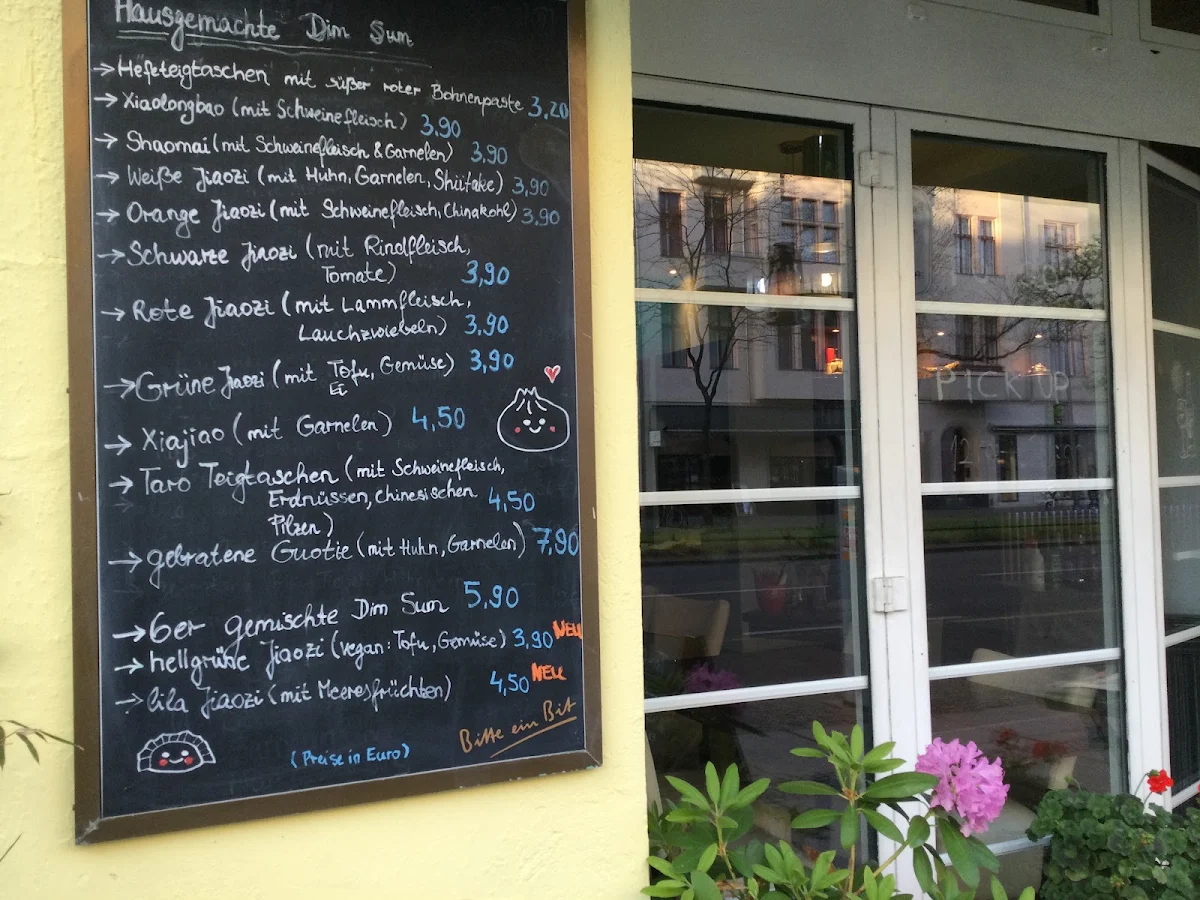 Hausgemachte Dim Sum
→ Hefeteigtaschen mit süßer roter Bohnenpaste 3,20
→ Xiaolongbao (mit Schweinefleisch) 3,90
→ Shaomai (mit Schweinefleisch & Garnelen) 3,90
→ Weiße Jiaozi (mit Huhn, Garnelen, Shiitake) 3,90
→ Orange Jiaozi (mit Schweinefleisch, Chinakohl) 3,90
→ Schwarze Jiaozi (mit Rindfleisch,
Tomate) 3,90
→ Rote Jiaozi (mit Lammfleisch,
Lauchzwiebeln) 3,90
→ Grüne Jiaozi (mit Tofu, Gemüse) 3,90
Ei
→ Xiajiao (mit Garnelen) 4,50
→ Taro Teigtaschen (mit Schweinefleisch,
Erdnüssen, chinesischen 4,50
Pilzen)
→ gebratene Guotie (mit Huhn, Garnelen) 7,90
→ 6er gemischte Dim Sum 5,90
→ hellgrüne Jiaozi (vegan: Tofu, Gemüse) 3,90 NEU
→ lila Jiaozi (mit Meeresfrüchten) 4,50 NEU
(Preise in Euro)
Bitte ein Bit
PICK UP